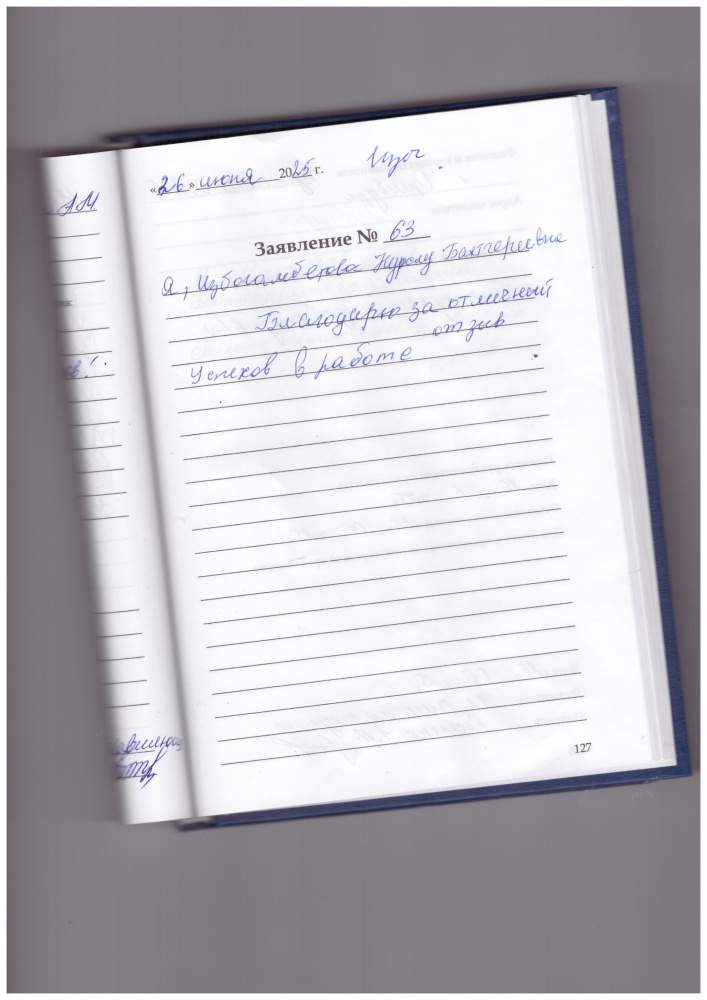 «26» июня 2025 г.
Заявление № 63
Я, Избасамбетова Нурслу Бахтгереевна
Благодарю за отличный
отзив
Успехов в работе
127